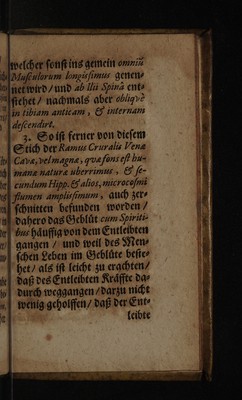 welcher sonst ins gemein omniũ
Musculorum longissimus genen-
net wird/ und ab Ilii Spinâ ent-
stehet/ nachmals aber obliqvè
in tibiam anticam, & internam
descendirt.
3. So ist ferner von diesem
Stich der Ramus Cruralis Venæ
Cavæ, vel magnæ, qvæ fons est hu-
manæ naturæ uberrimus, & se-
cundum Hipp. & alios, microcosmi
flumen amplissimum, auch zer-
schnitten befunden worden/
dahero das Geblüt cum Spiriti-
bus häuffig von dem Entleibten
gangen/ und weil des Men-
schen Leben im Geblüte beste-
het/ als ist leicht zu erachten/
daß des Entleibten Kräffte da-
durch weggangen/ darzu nicht
wenig geholffen/ daß der Ent-
leibte